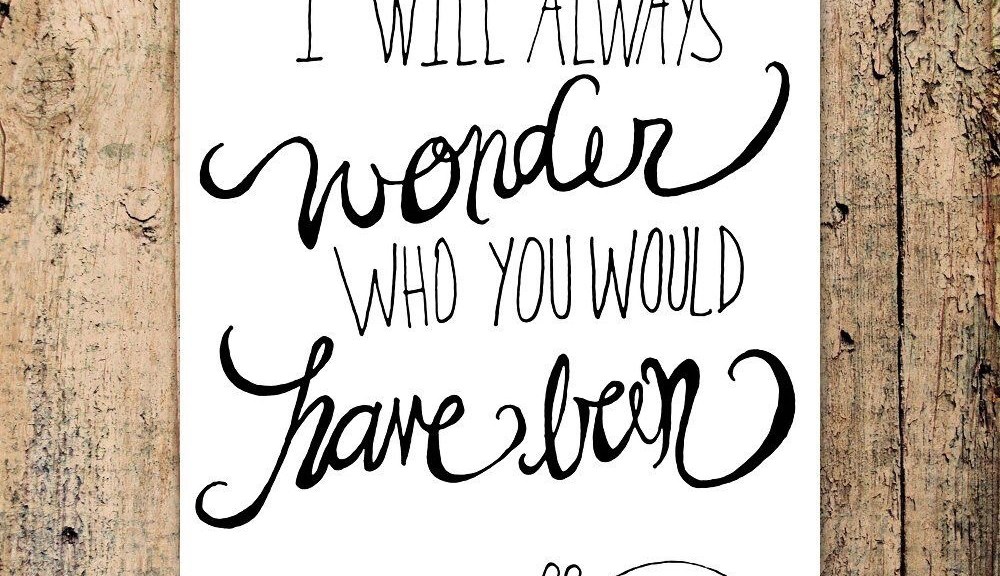 I WILL ALWAYS
wonder
WHO YOU WOULD
have been